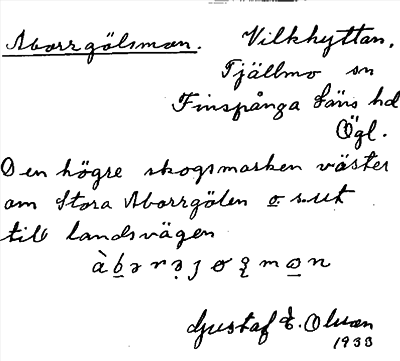 Aborrgölsmon. Vilkhyttan,
Tjällmo sn
Finspånga läns hd
Ögl.
Den högre skogsmarken väster
om Stora Aborrgölen o. s. ut
till landsvägen
Gustaf E. Olson
1933